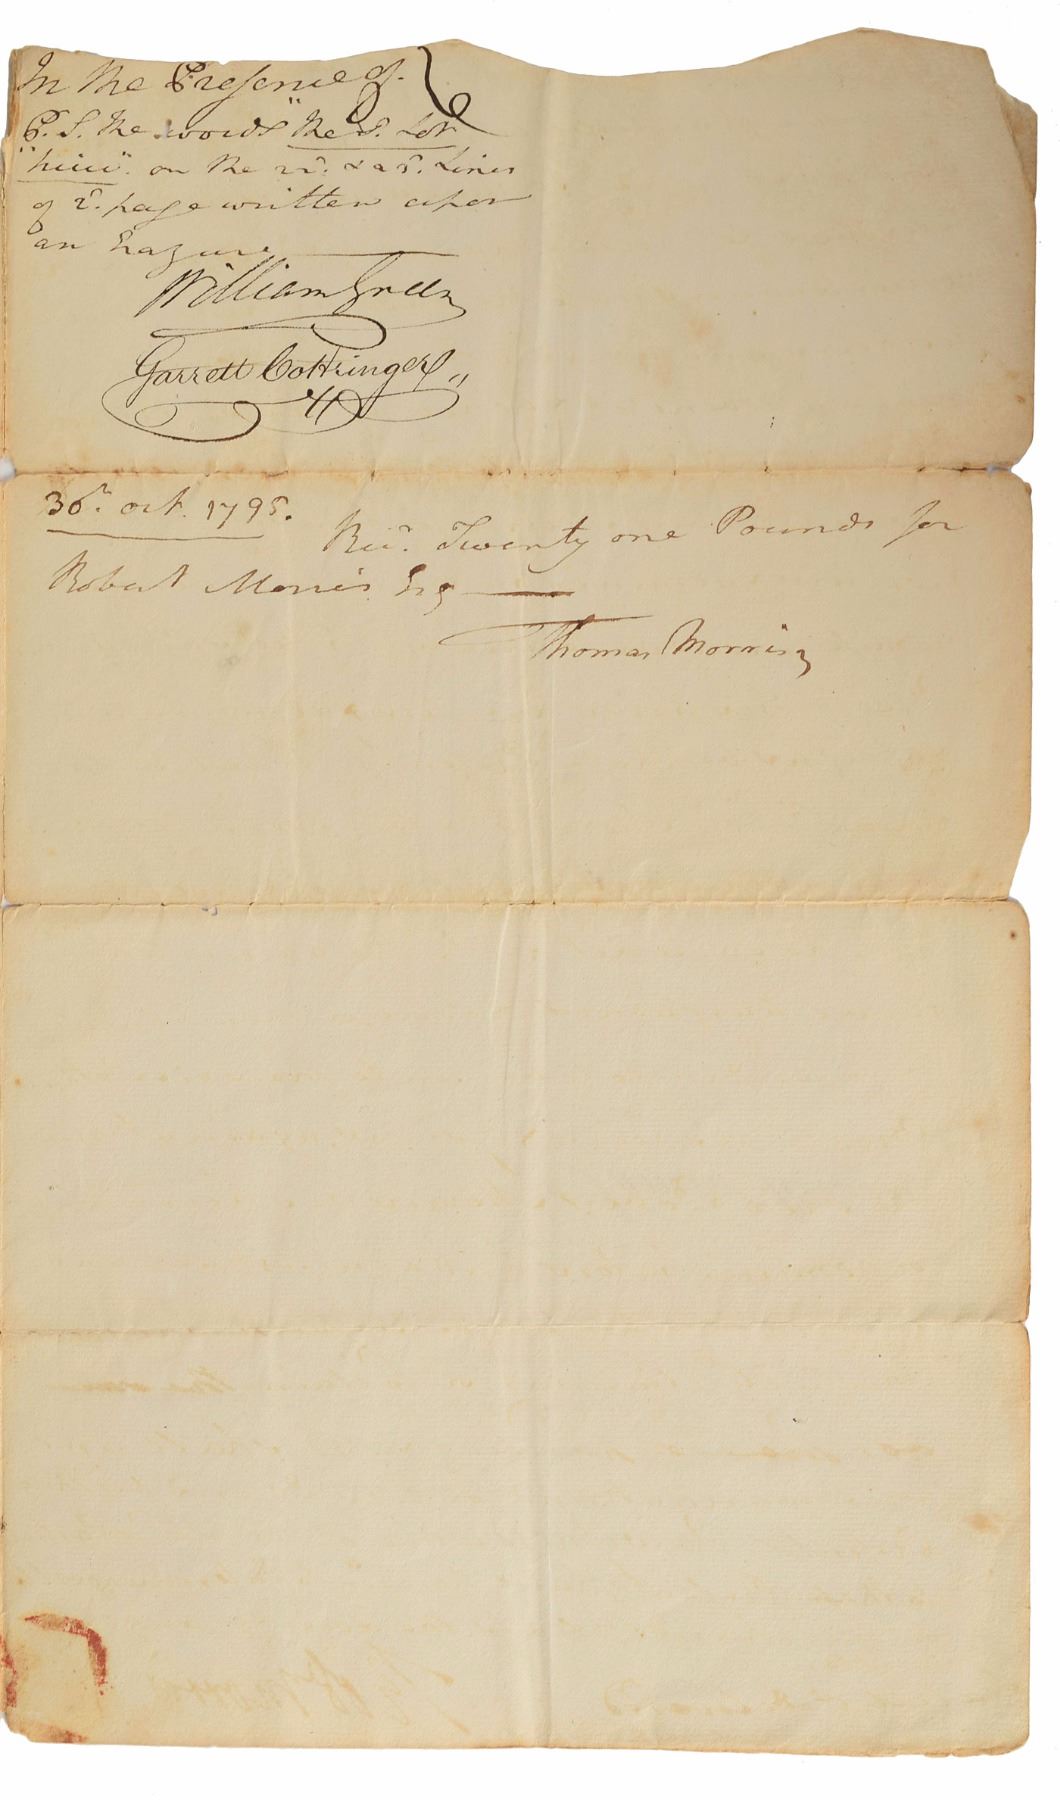 In the Presence of
P. S. the words "the S. Lot
"him". on the 22d. & 23d. Lines
of 2d. page written upon
an Erazure
William Green
Garrett Cottringer
30th. oct. 1795.
Recd. Twenty one Pounds for
Robert Morris Esq
Thomas Morris